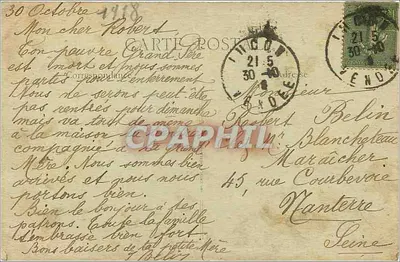 30 Octobre 1918
Mon cher Robert
CARTE POSTALE
Ton pauvre Grand Père
est mort et nous sommes
partis à l'enterrement
Correspondance
Adresse
Nous ne serons peut-être
pas rentrés pour dimanche
mais va tout de même
à la maison
compagnie à
Mère. Nous sommes bien
arrivés et nous nous
portons bien.
Bien le bonjour à tes
patrons. Toute la famille
t'embrasse bien fort
Bons baisers de ta petite Mère
Belin
21 5
30-10
VENDEE
21 5
30-10
VENDEE
Monsieur
Robert Belin
Blanchateau
Maraîcher
45, rue Courbevoie
Nanterre
Seine
CPAPHIL